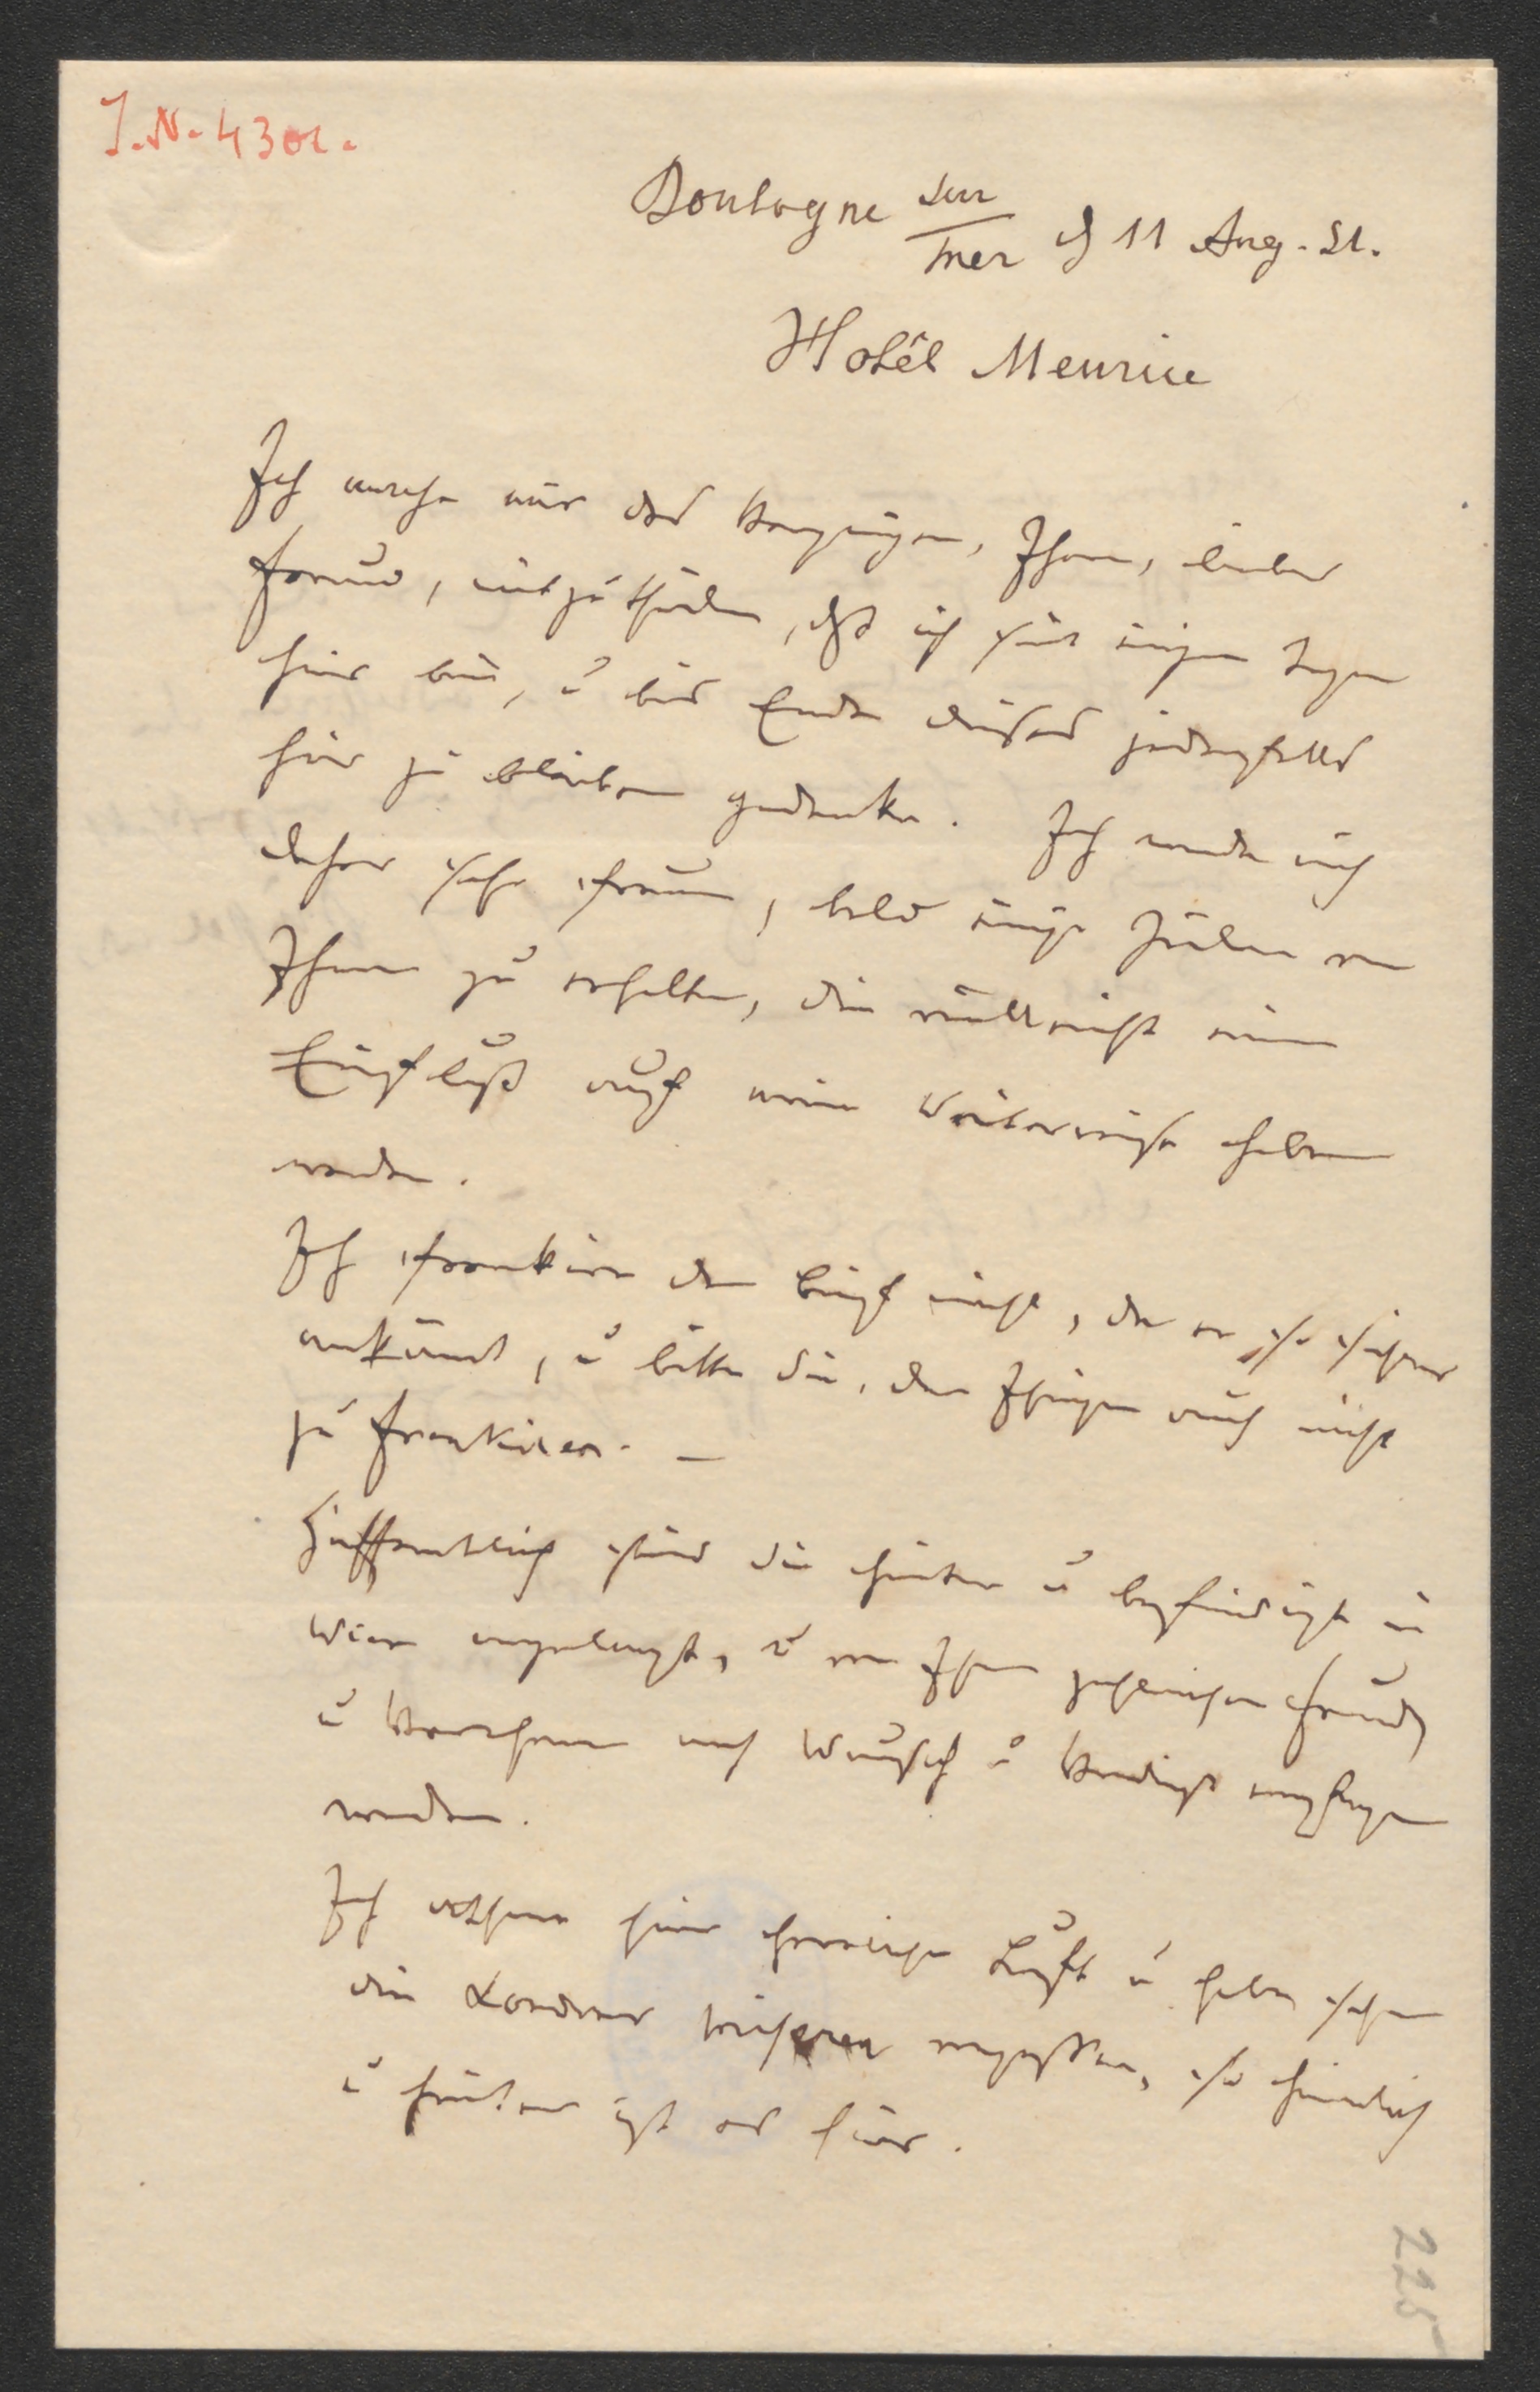 J.N. 4301.
Boulogne sur
mer d 11 Aug. 51.
Hotêl Meurice
Ich mache mir das Vergnügen, Ihnen, lieber
Freund, mitzutheilen, daß ich seit einigen Tagen
hier bin, u bis Ende dieses jedenfalls
hier zu bleiben gedenke. Ich werde mich
daher sehr freuen, bald einige Zeilen von
Ihnen zu erhalten, die vielleicht einen
Einfluß auf meine Weiterreise haben
werden.
Ich frankire den Brief nicht, da er so sicherer
ankömmt, u bitte Sie, den Ihrigen auch nicht
zu frankiren. —
Hoffentlich sind Sie heiter u befriedigt in
Wien angelangt, u von Ihren zahlreichen Freunden
u Verehrern nach Wunsch u Verdienst empfangen
worden.
Ich athme hier herrliche Luft u habe schon
die Londoner vergessen, so heimlich
u heiter ist es hier.
225